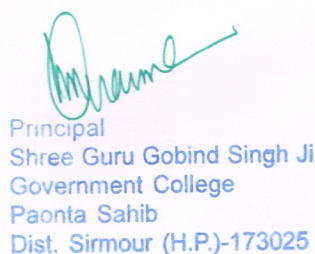 Principal
Shree Guru Gobind Singh Ji
Government College
Paonta Sahib
Dist. Sirmour (H.P.)-173025